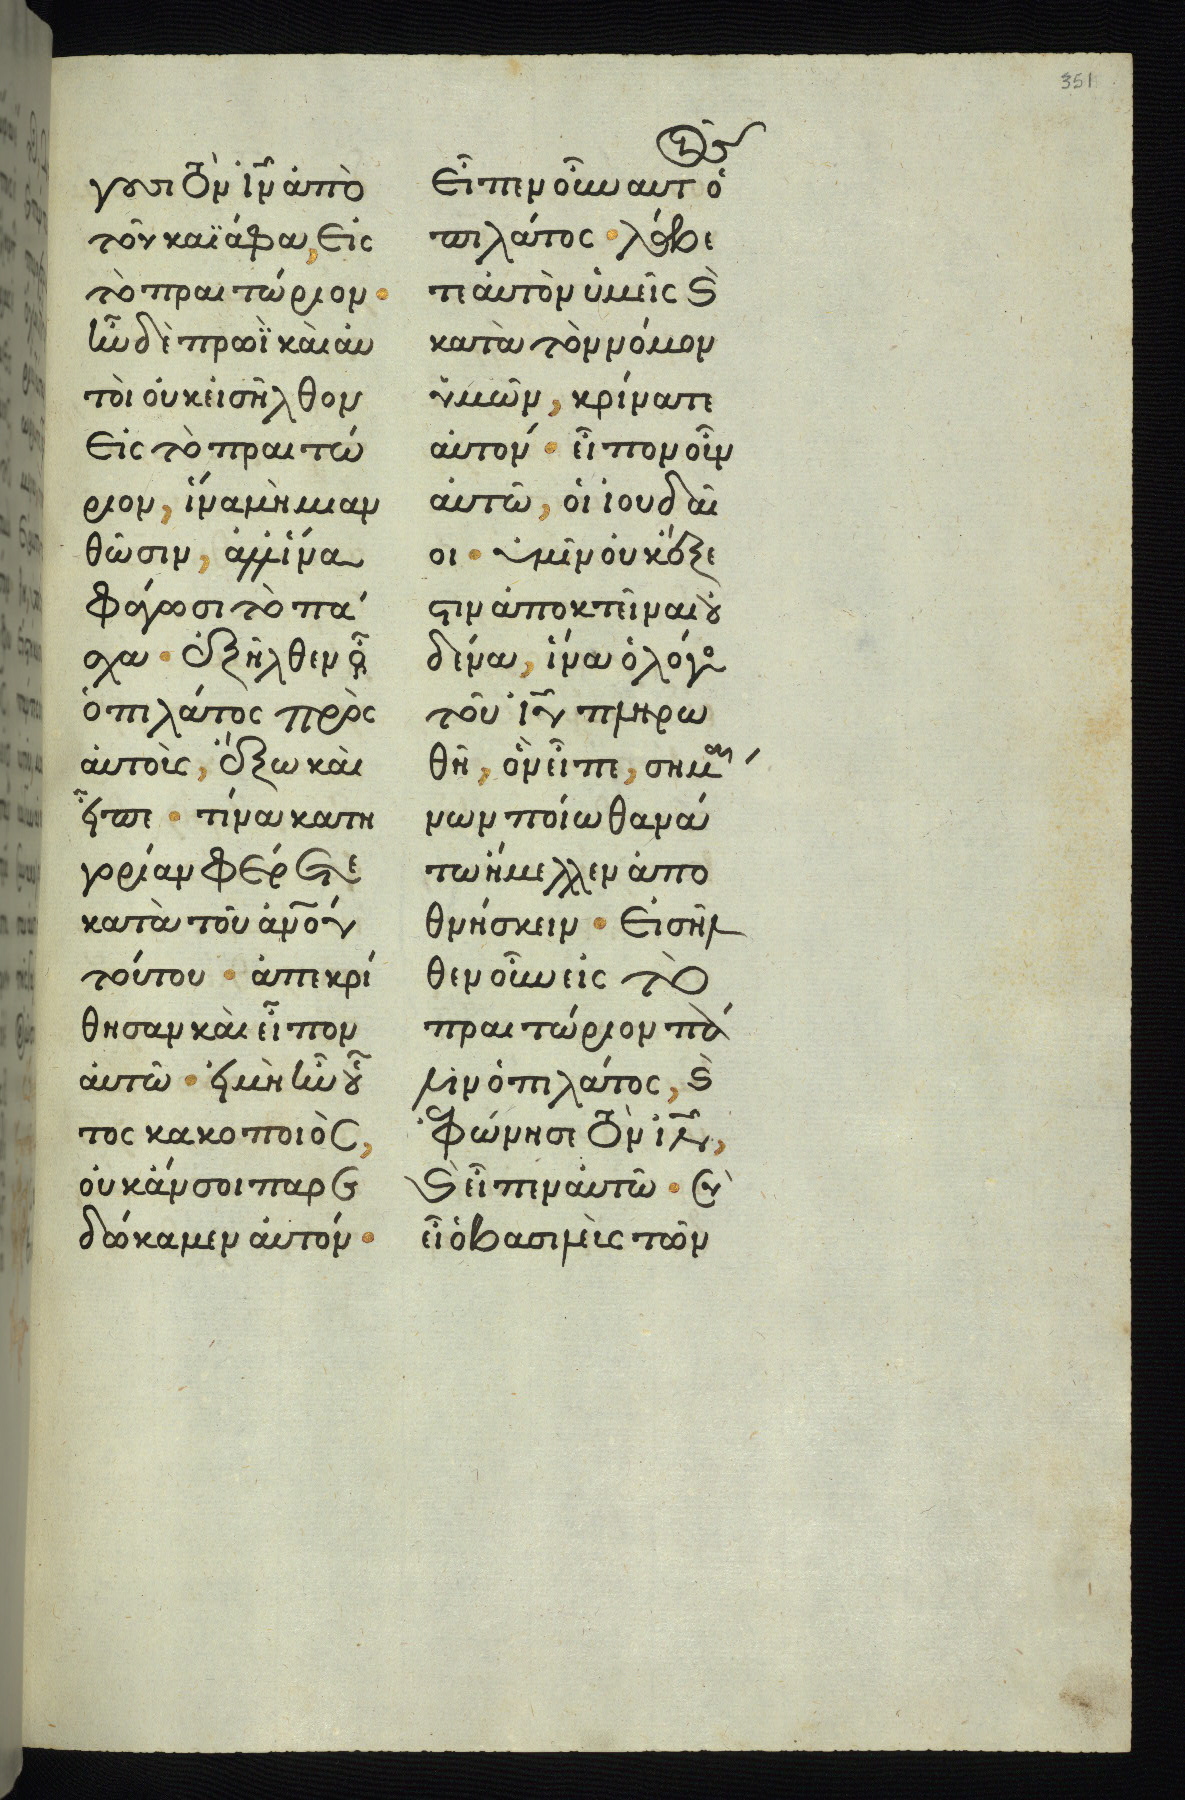 351
γουσι τὸν ἰν̅ ἀπὸ
τοῦ καϊάφα, εἰς
τὸ πραιτώριον·
ἦν δὲ πρωῒ καὶ αυ
τοὶ οὐκ εἰσῆλθον
εἰς τὸ πραιτώ
ριον, ἵνα μὴ μιαν
θῶσιν, ἀλλ ἵνα
φάγωσι τὸ πά
σχα· ἐξῆλθεν οὖν
ὁ πιλάτος πρὸς
αὐτοὺς, ἔξω καὶ
εἶπε· τίνα κατη
γορίαν φέρετε
κατὰ τοῦ ἀν̅ου
τούτου· ἀπεκρί
θησαν καὶ εἶπον
αὐτῶ· εἰ μὴ ἦν οὗ
τος κακοποιὸς,
οὐκ ἄν σοι παρε
δώκαμεν αὐτόν·
εἶπεν οὖν αυτοῖς ὁ
πιλάτος· λάβε
τε αὐτὸν ὑμεῖς καὶ
κατὰ τὸν νόμον
ὑμῶν, κρίνατε
αὐτόν· εἶπον οὖν
αὐτῶ, οἱ ἰουδαῖ
οι· ὑμῖν οὐκ ἔξε
στιν ἀποκτεῖναι οὐ
δένα, ἵνα ὁ λόγος
τοῦ ἰυ̅ πληρω
θῆ, ὃν εἶπε, σημαί
νων ποίω θανά
τω ἤμελλεν ἀπο
θνήσκειν· εἰσῆλ
θεν οὖν εἰς τὸ
πραιτώριον πά
λιν ὁ πιλάτος, καὶ
ἐφώνησε τὸν ἰν̅,
καὶ εἶπεν αὐτῶ· σὺ
εἶ ὁ βασιλεὺς τῶν